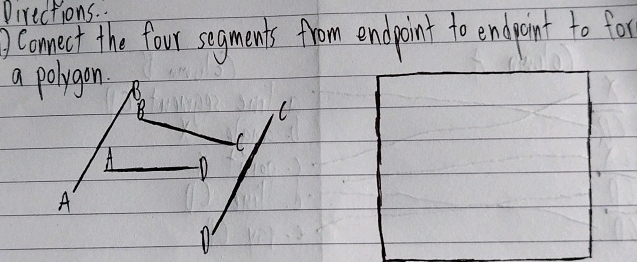 Directions:.
1) Connect the four segments from endpoint to endpoint to for
a polygon.
B
B
C
C
A
D
A
D